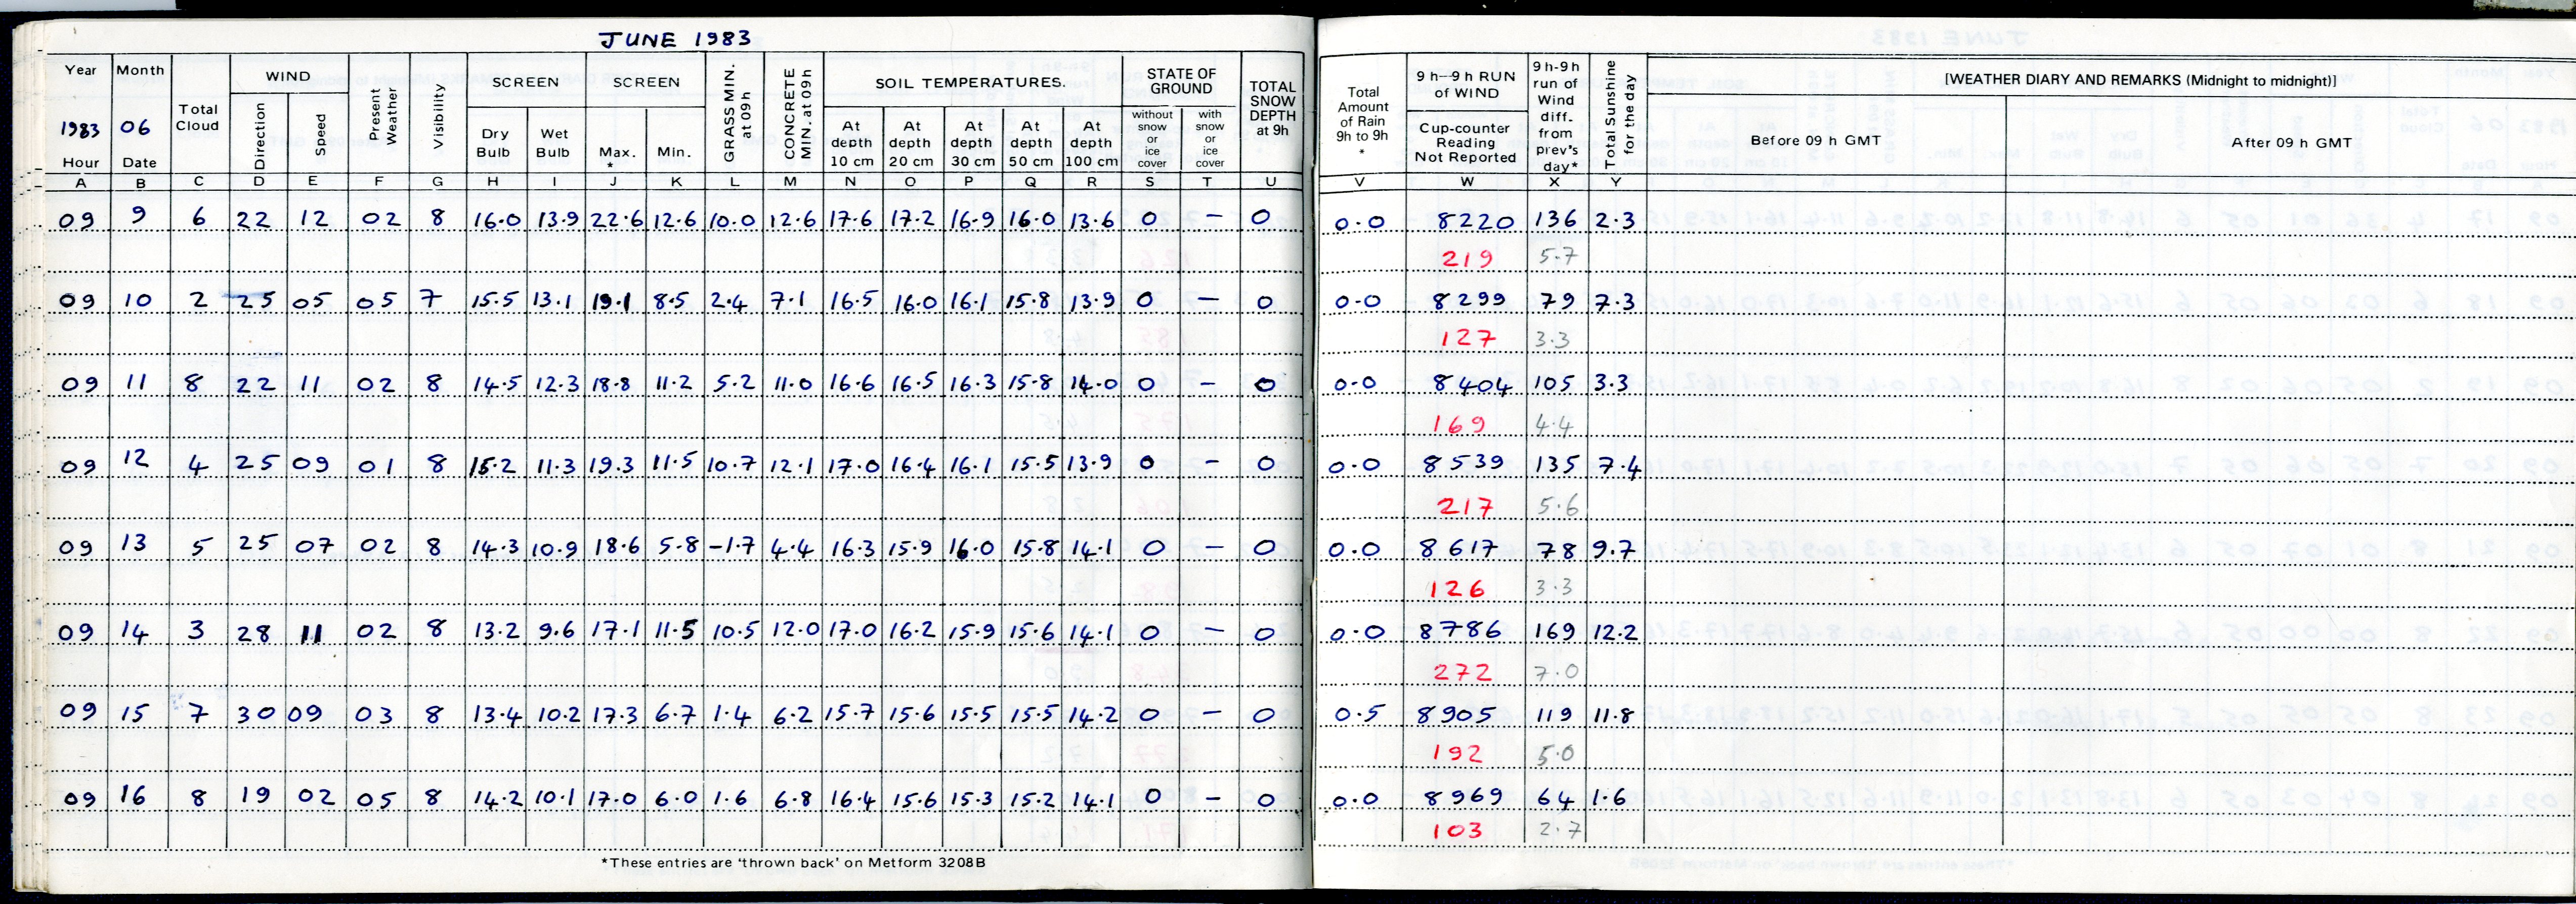 JUNE 1983
Year Month Total Cloud WIND Present Weather Visibility SCREEN SCREEN GRASS MIN. at 09h CONCRETE MIN. at 09h SOIL TEMPERATURES. STATE OF GROUND TOTAL SNOW DEPTH at 9h Total Amount of Rain 9h to 9h * 9h–9h RUN of WIND 9h-9h run of Wind diff. from prev's day* Total Sunshine for the day [WEATHER DIARY AND REMARKS (Midnight to midnight)]
1983 06 Direction Speed Dry Bulb Wet Bulb Max. * Min. At depth 10 cm At depth 20 cm At depth 30 cm At depth 50 cm At depth 100 cm without snow or ice cover with snow or ice cover Cup-counter Reading Not Reported Before 09 h GMT After 09 h GMT
Hour Date
A B C D E F G H I J K L M N O P Q R S T U V W X Y
09 9 6 22 12 02 8 16.0 13.9 22.6 12.6 10.0 12.6 17.6 17.2 16.9 16.0 13.6 0 – 0 0.0 8220 136 2.3
219 5.7
09 10 2 25 05 05 7 15.5 13.1 19.1 8.5 2.4 7.1 16.5 16.0 16.1 15.8 13.9 0 – 0 0.0 8299 79 7.3
127 3.3
09 11 8 22 11 02 8 14.5 12.3 18.8 11.2 5.2 11.0 16.6 16.5 16.3 15.8 14.0 0 – 0 0.0 8404 105 3.3
169 4.4
09 12 4 25 09 01 8 15.2 11.3 19.3 11.5 10.7 12.1 17.0 16.4 16.1 15.5 13.9 0 – 0 0.0 8539 135 7.4
217 5.6
09 13 5 25 07 02 8 14.3 10.9 18.6 5.8 -1.7 4.4 16.3 15.9 16.0 15.8 14.1 0 – 0 0.0 8617 78 9.7
126 3.3
09 14 3 28 11 02 8 13.2 9.6 17.1 11.5 10.5 12.0 17.0 16.2 15.9 15.6 14.1 0 – 0 0.0 8786 169 12.2
272 7.0
09 15 7 30 09 03 8 13.4 10.2 17.3 6.7 1.4 6.2 15.7 15.6 15.5 15.5 14.2 0 – 0 0.5 8905 119 11.8
192 5.0
09 16 8 19 02 05 8 14.2 10.1 17.0 6.0 1.6 6.8 16.4 15.6 15.3 15.2 14.1 0 – 0 0.0 8969 64 1.6
103 2.7
*These entries are 'thrown back' on Metform 3208B